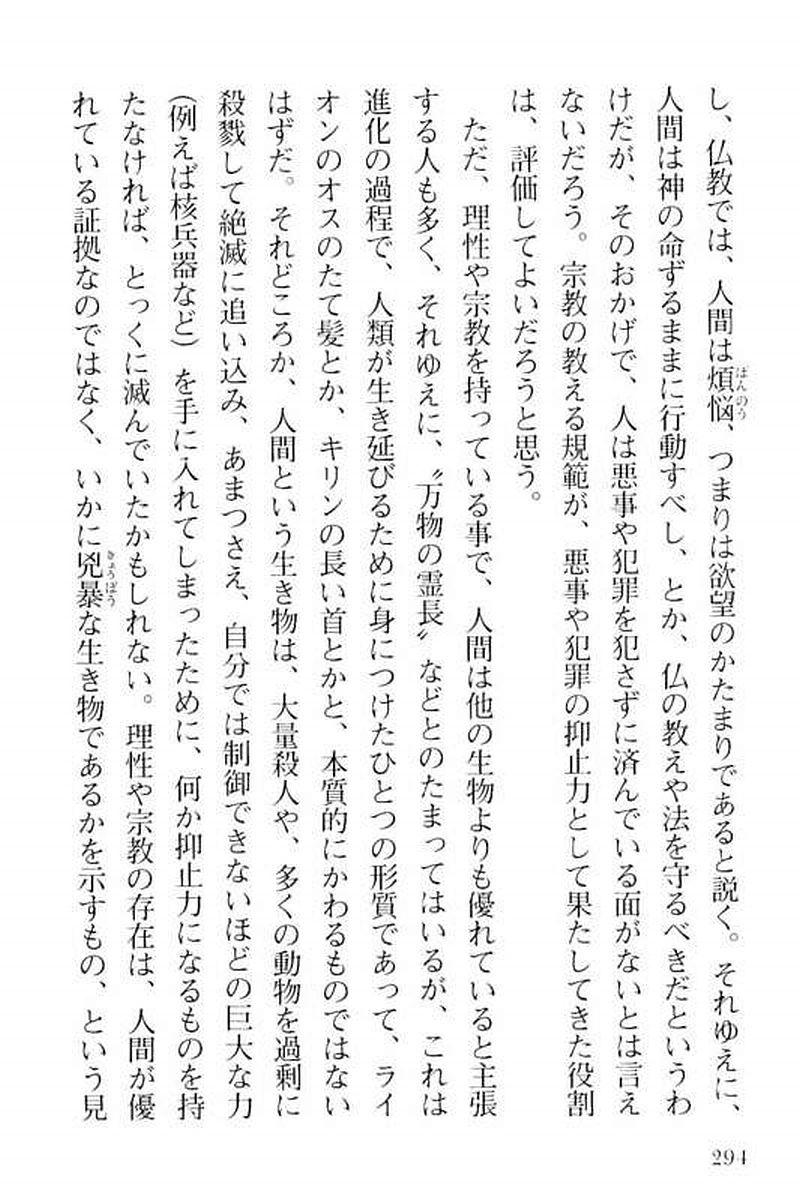 し、仏教では、人間は煩悩、つまりは欲望のかたまりであると説く。それゆえに、
ぼんのう
人間は神の命ずるままに行動すべし、とか、仏の教えや法を守るべきだというわ
けだが、そのおかげで、人は悪事や犯罪を犯さずに済んでいる面がないとは言え
ないだろう。宗教の教える規範が、悪事や犯罪の抑止力として果たしてきた役割
は、評価してよいだろうと思う。
ただ、理性や宗教を持っている事で、人間は他の生物よりも優れていると主張
する人も多く、それゆえに、〝万物の霊長〟などとのたまってはいるが、これは
進化の過程で、人類が生き延びるために身につけたひとつの形質であって、ライ
オンのオスのたて髪とか、キリンの長い首とかと、本質的にかわるものではない
はずだ。それどころか、人間という生き物は、大量殺人や、多くの動物を過剰に
殺戮して絶滅に追い込み、あまつさえ、自分では制御できないほどの巨大な力
(例えば核兵器など)を手に入れてしまったために、何か抑止力になるものを持
たなければ、とっくに滅んでいたかもしれない。理性や宗教の存在は、人間が優
れている証拠なのではなく、いかに兇暴な生き物であるかを示すもの、という見
きょうぼう
294